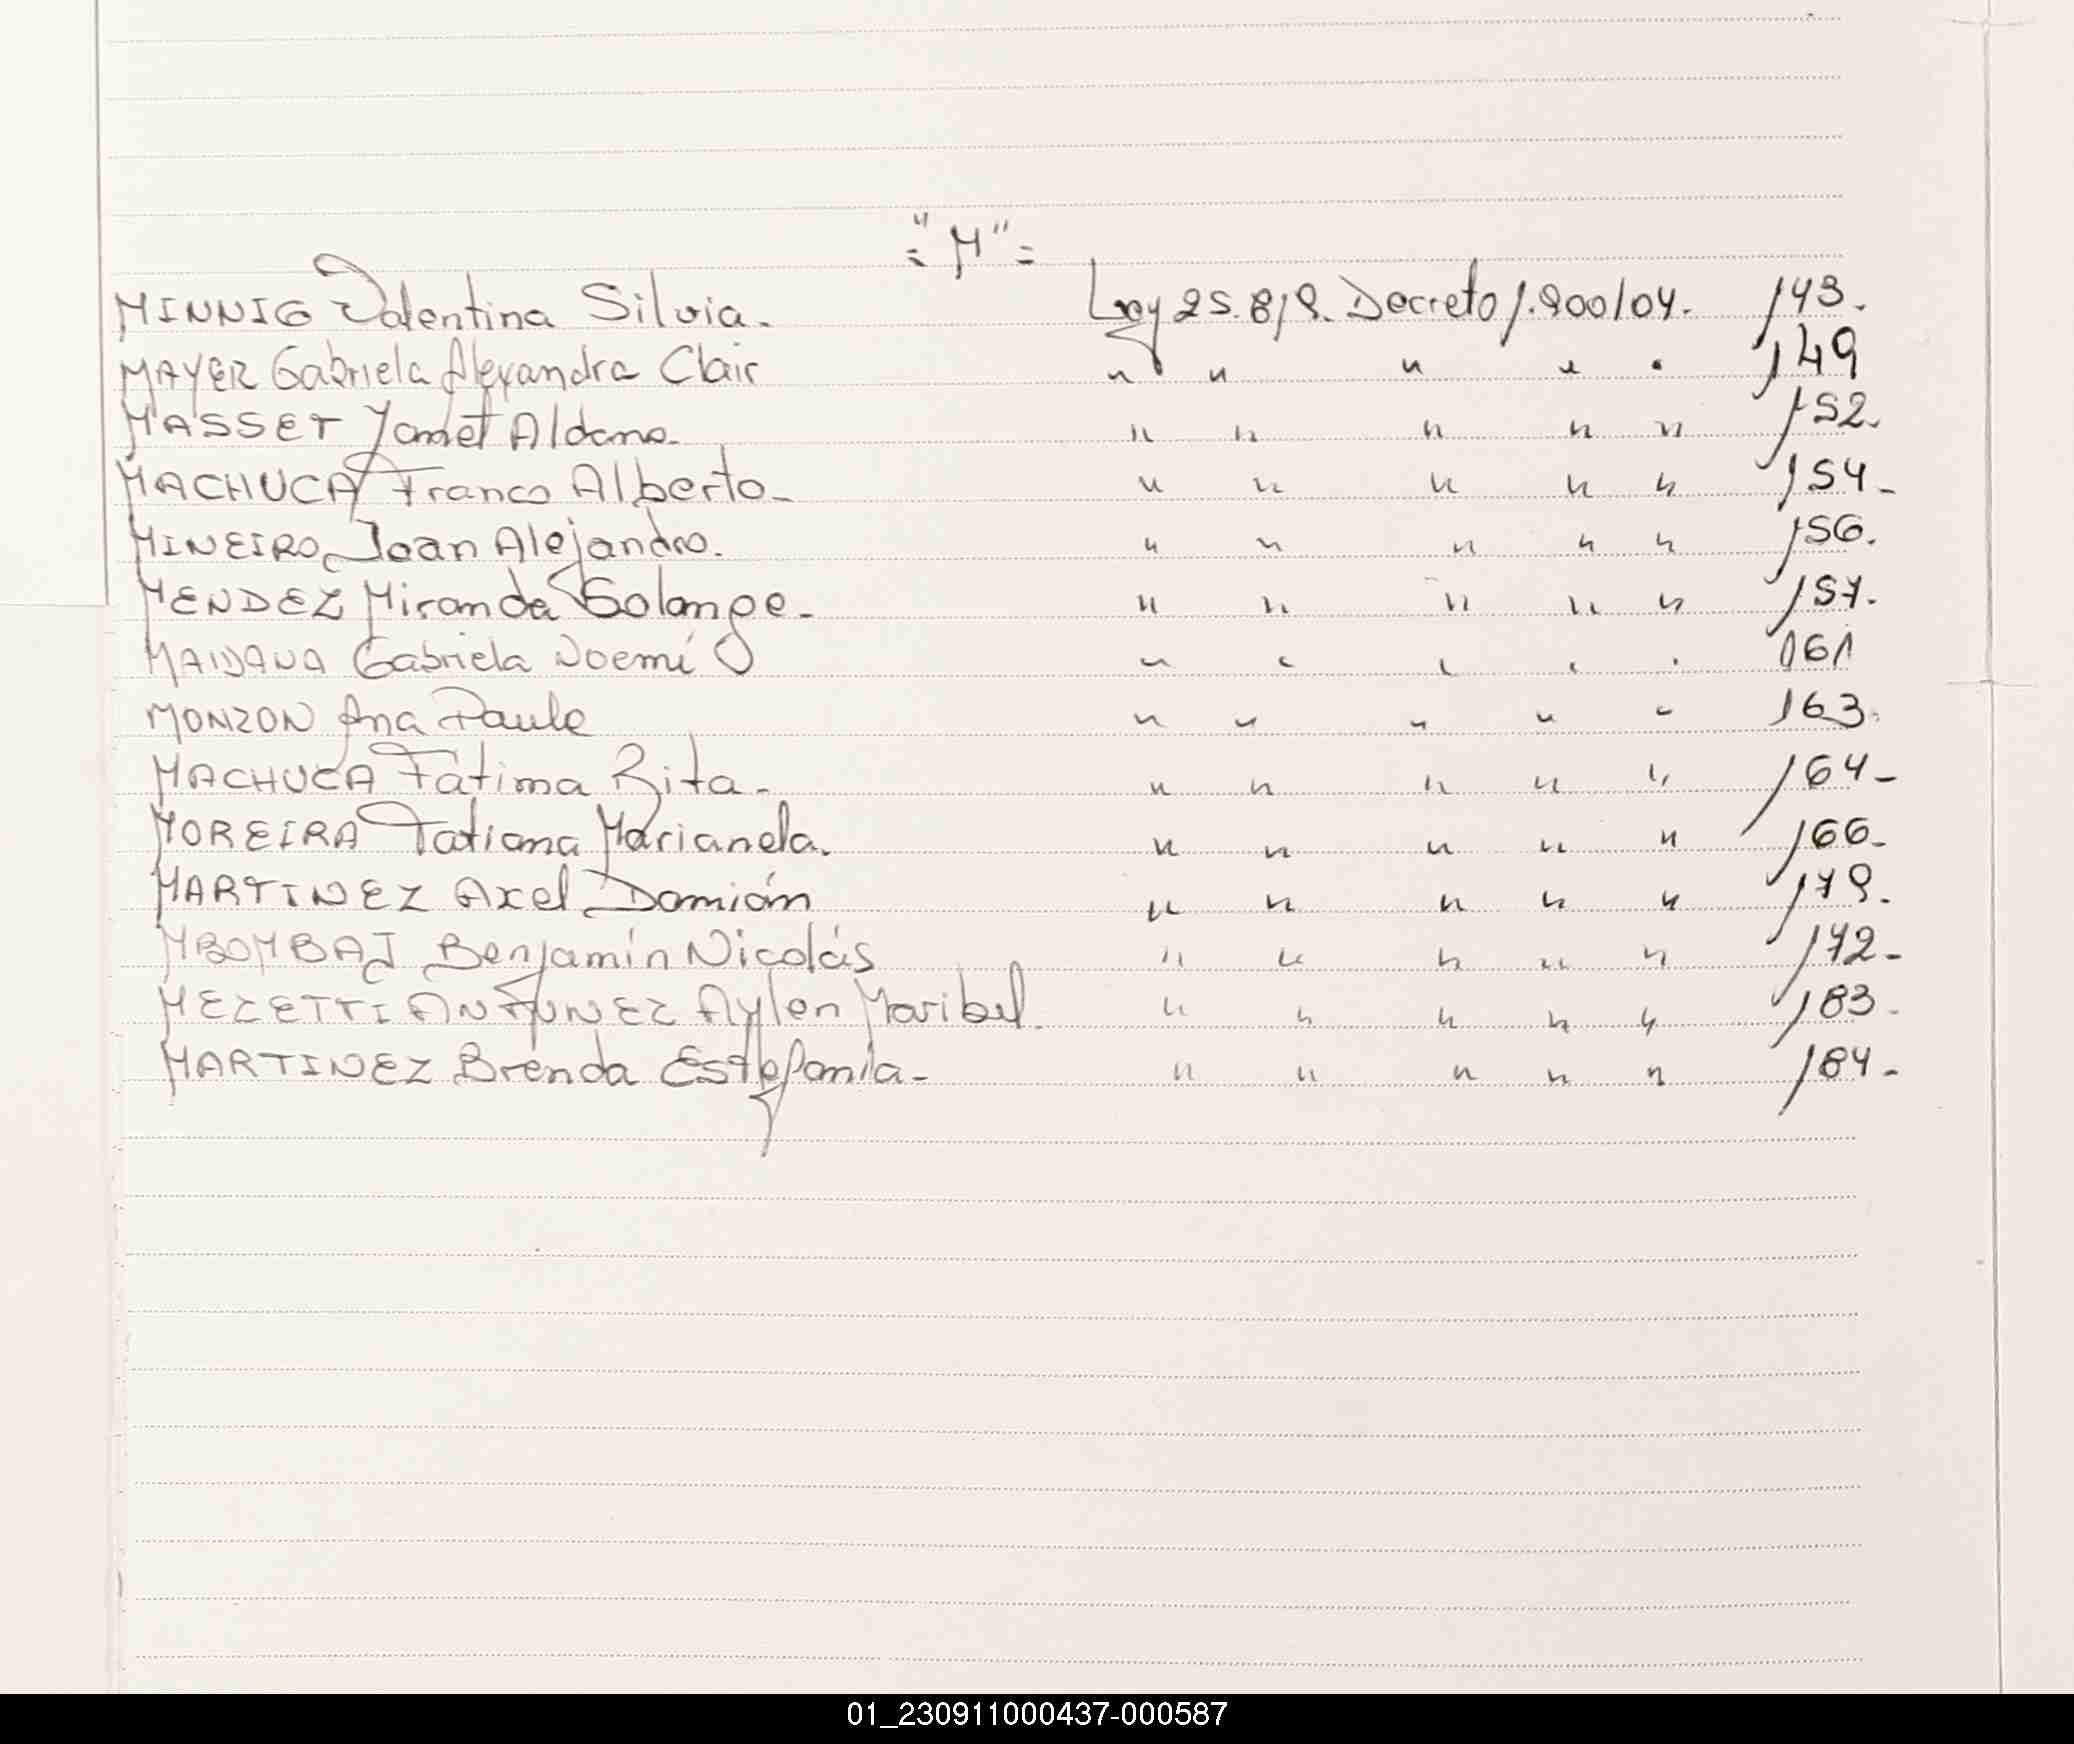 ="M"=
MINNIG Valentina Silvia. Ley 25.819. Decreto 1.900/04. 143.
MAYER Gabriela Alexandra Clair " " " " " 149
MASSET Yamet Aldana. " " " " " 152.
MACHUCA Franco Alberto. " " " " " 154.
MINEIRO Joan Alejandro. " " " " " 156.
MENDEZ Miranda Solange. " " " " " 157.
MAIDANA Gabriela Noemí " " " " " 161
MONZON Ana Paula " " " " " 163.
MACHUCA Fátima Rita. " " " " " 164.
MOREIRA Tatiana Marianela. " " " " " 166.
MARTINEZ Axel Damián " " " " " 179.
MBOMBAJ Benjamín Nicolás " " " " " 172.
MEZETTI ANTUNEZ Aylen Maribel. " " " " " 183.
MARTINEZ Brenda Estefanía. " " " " " 184.
01_230911000437-000587